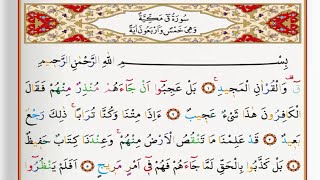 سُورَةُ قٓ مَكِّيَّةٌ
وَهِيَ خَمْسٌ وَأَرْبَعُونَ آيَةً
بِسْمِ اللَّهِ الرَّحْمَٰنِ الرَّحِيمِ
قٓ ۚ وَالْقُرْآنِ الْمَجِيدِ ۝١ بَلْ عَجِبُوا أَنْ جَاءَهُمْ مُنْذِرٌ مِنْهُمْ فَقَالَ
الْكَافِرُونَ هَٰذَا شَيْءٌ عَجِيبٌ ۝٢ أَإِذَا مِتْنَا وَكُنَّا تُرَابًا ۖ ذَٰلِكَ رَجْعٌ
بَعِيدٌ ۝٣ قَدْ عَلِمْنَا مَا تَنْقُصُ الْأَرْضُ مِنْهُمْ ۖ وَعِنْدَنَا كِتَابٌ حَفِيظٌ
۝٤ بَلْ كَذَّبُوا بِالْحَقِّ لَمَّا جَاءَهُمْ فَهُمْ فِي أَمْرٍ مَرِيجٍ ۝٥ أَفَلَمْ يَنْظُرُوا